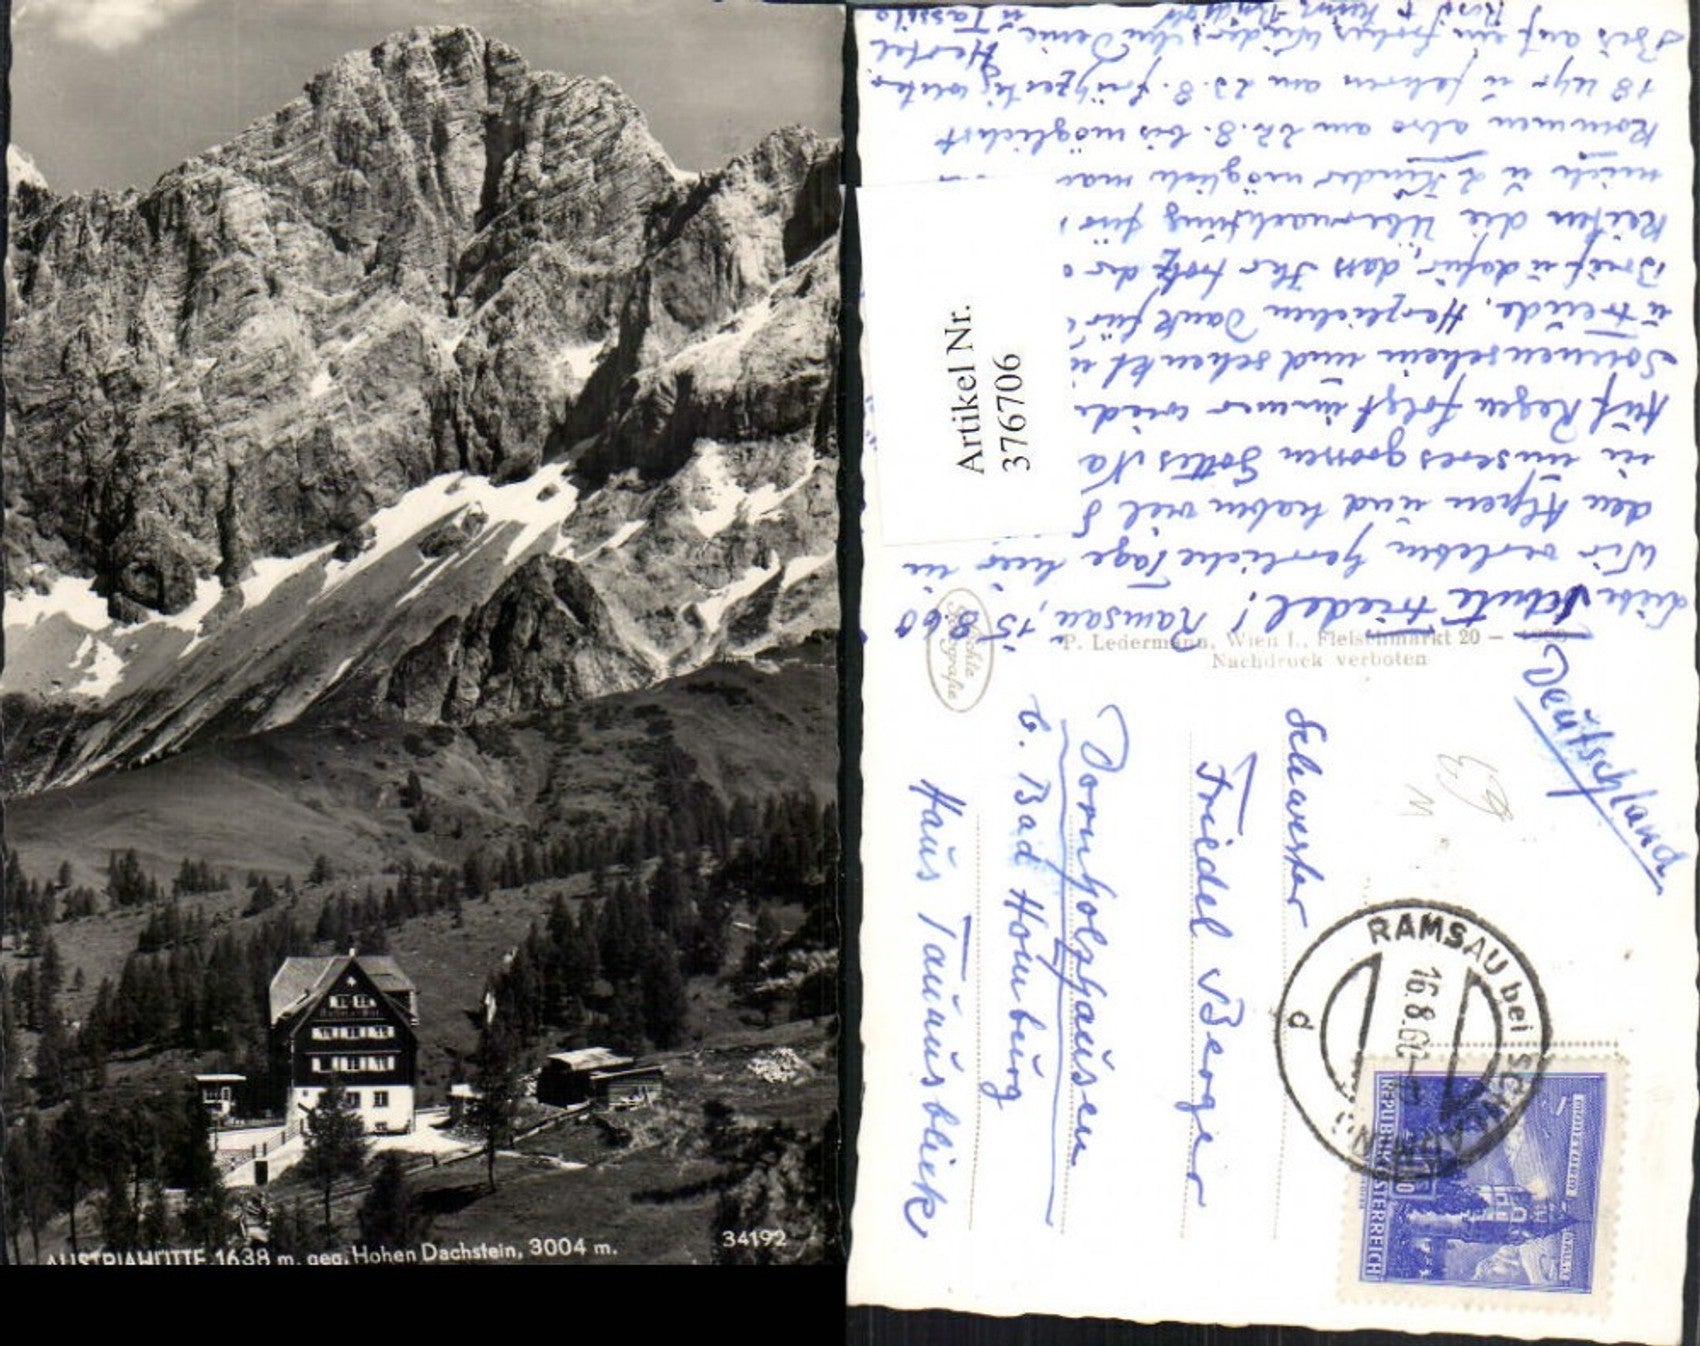 AUSTRIAHÜTTE, 1638 m, geg. Hohen Dachstein, 3004 m.
34192
Artikel Nr.
376706
Ramsau, 15.8.60
Liebe Schwester Friedel!
Wir erleben herrliche Tage hier in
den Alpen und haben viel
in unseres grossen Gottes Na
Auf Regen folgt immer wiede
Sonnenschein und schenkt
u Freude. Herzlichen Dank für
Brief u dafür, dass Ihr trotz der
die Übernachtung für
mich u 2 Kinder möglich mac
Kommen also am 22.8. bis möglichst
18 Uhr u fahren am 23.8. frühzeitig weiter.
Bis auf ein frohes Wiedersehn Deine
P. Ledermann, Wien I., Fleischmarkt 20 – 1960
Nachdruck verboten
Echte
Fotografie
Schwester
Friedel Berger
Dornholzhausen
b. Bad Homburg
Haus Taunusblick
Deutschland
RAMSAU bei SCHLADMING
16.8.60
REPUBLIK ÖSTERREICH